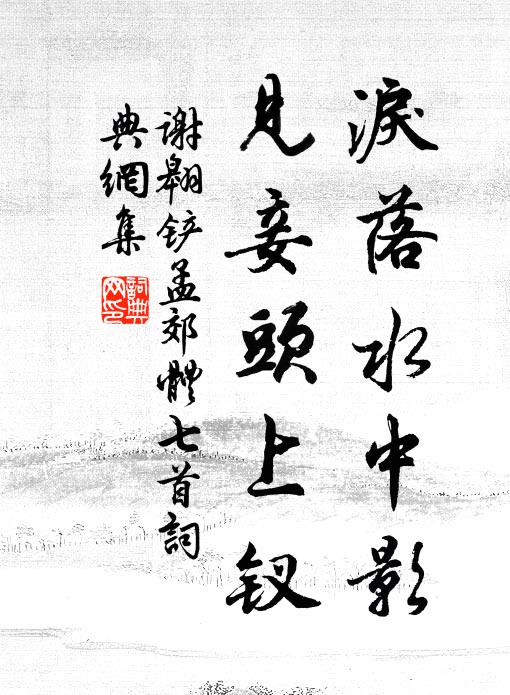 淚落水中影
見妾頭上钗
谢翱铲孟郊體七首詞
典網集
詞典网印